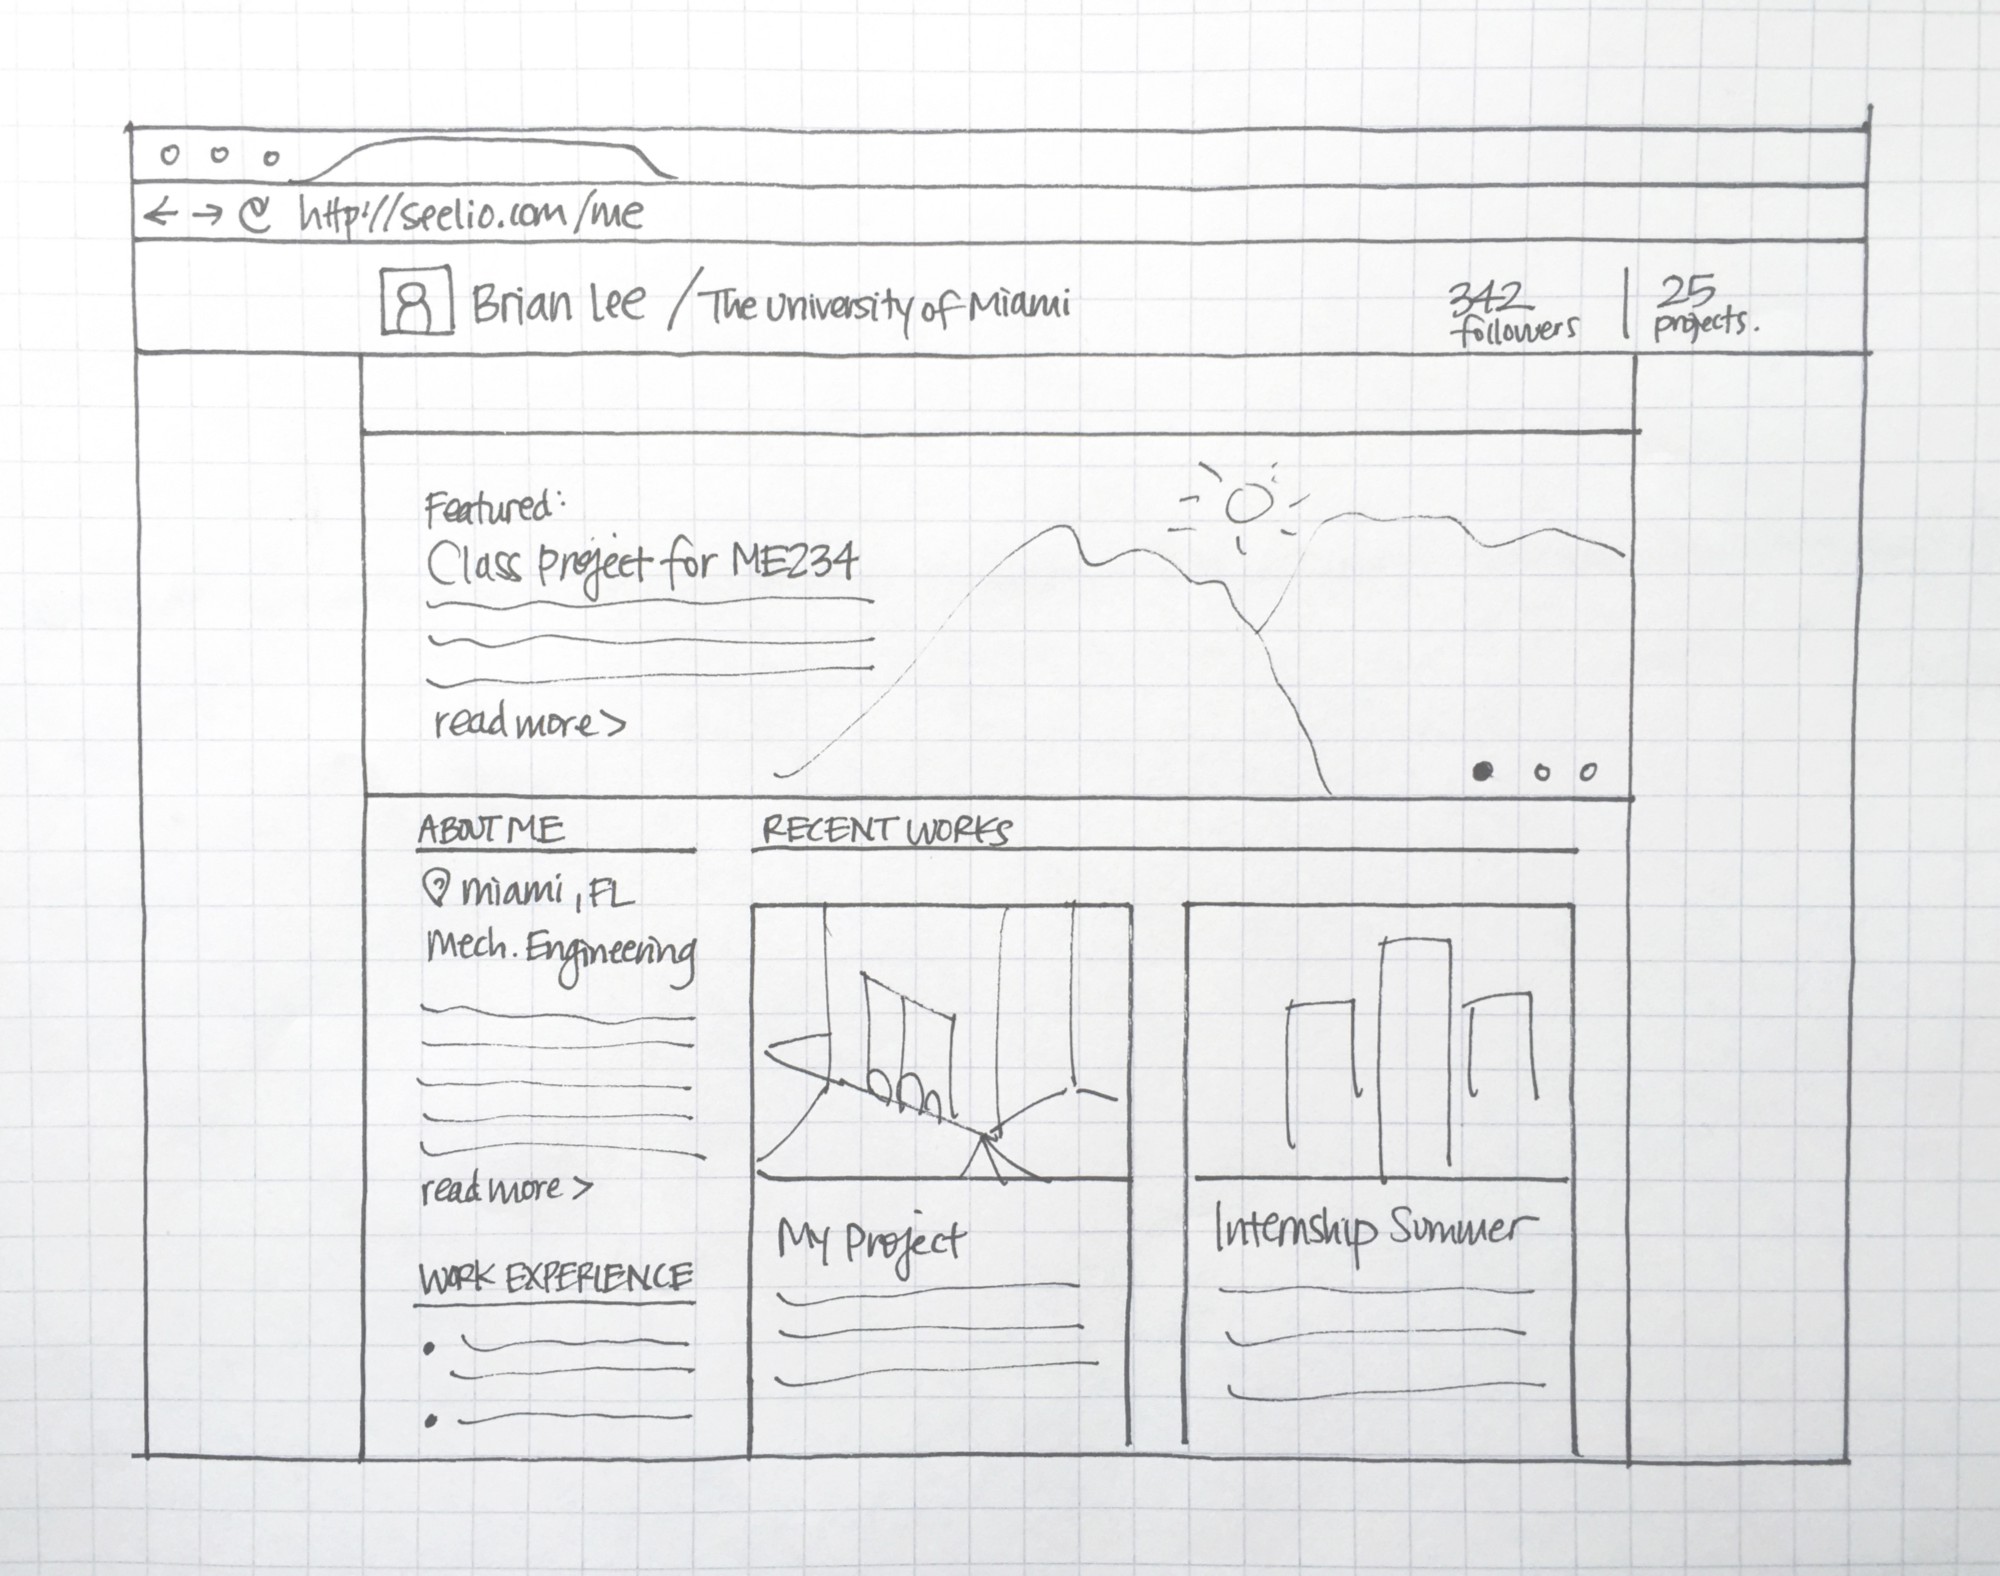 http://seelio.com/me
Brian Lee / The University of Miami
342
followers
25
projects.
Featured:
Class project for ME234
read more >
ABOUT ME
miami, FL
Mech. Engineering
read more >
WORK EXPERIENCE
RECENT WORKS
My Project
Internship Summer